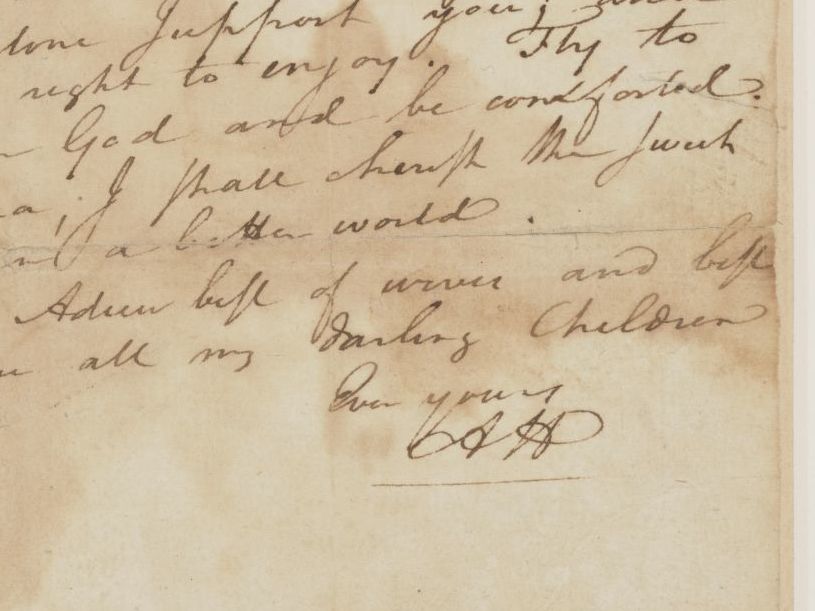 alone support you; and
right to enjoy. Fly to
God and be comforted.
I shall cherish the sweet
in a better world.
Adieu best of wives and best
all my darling Children
Ever yours
AH